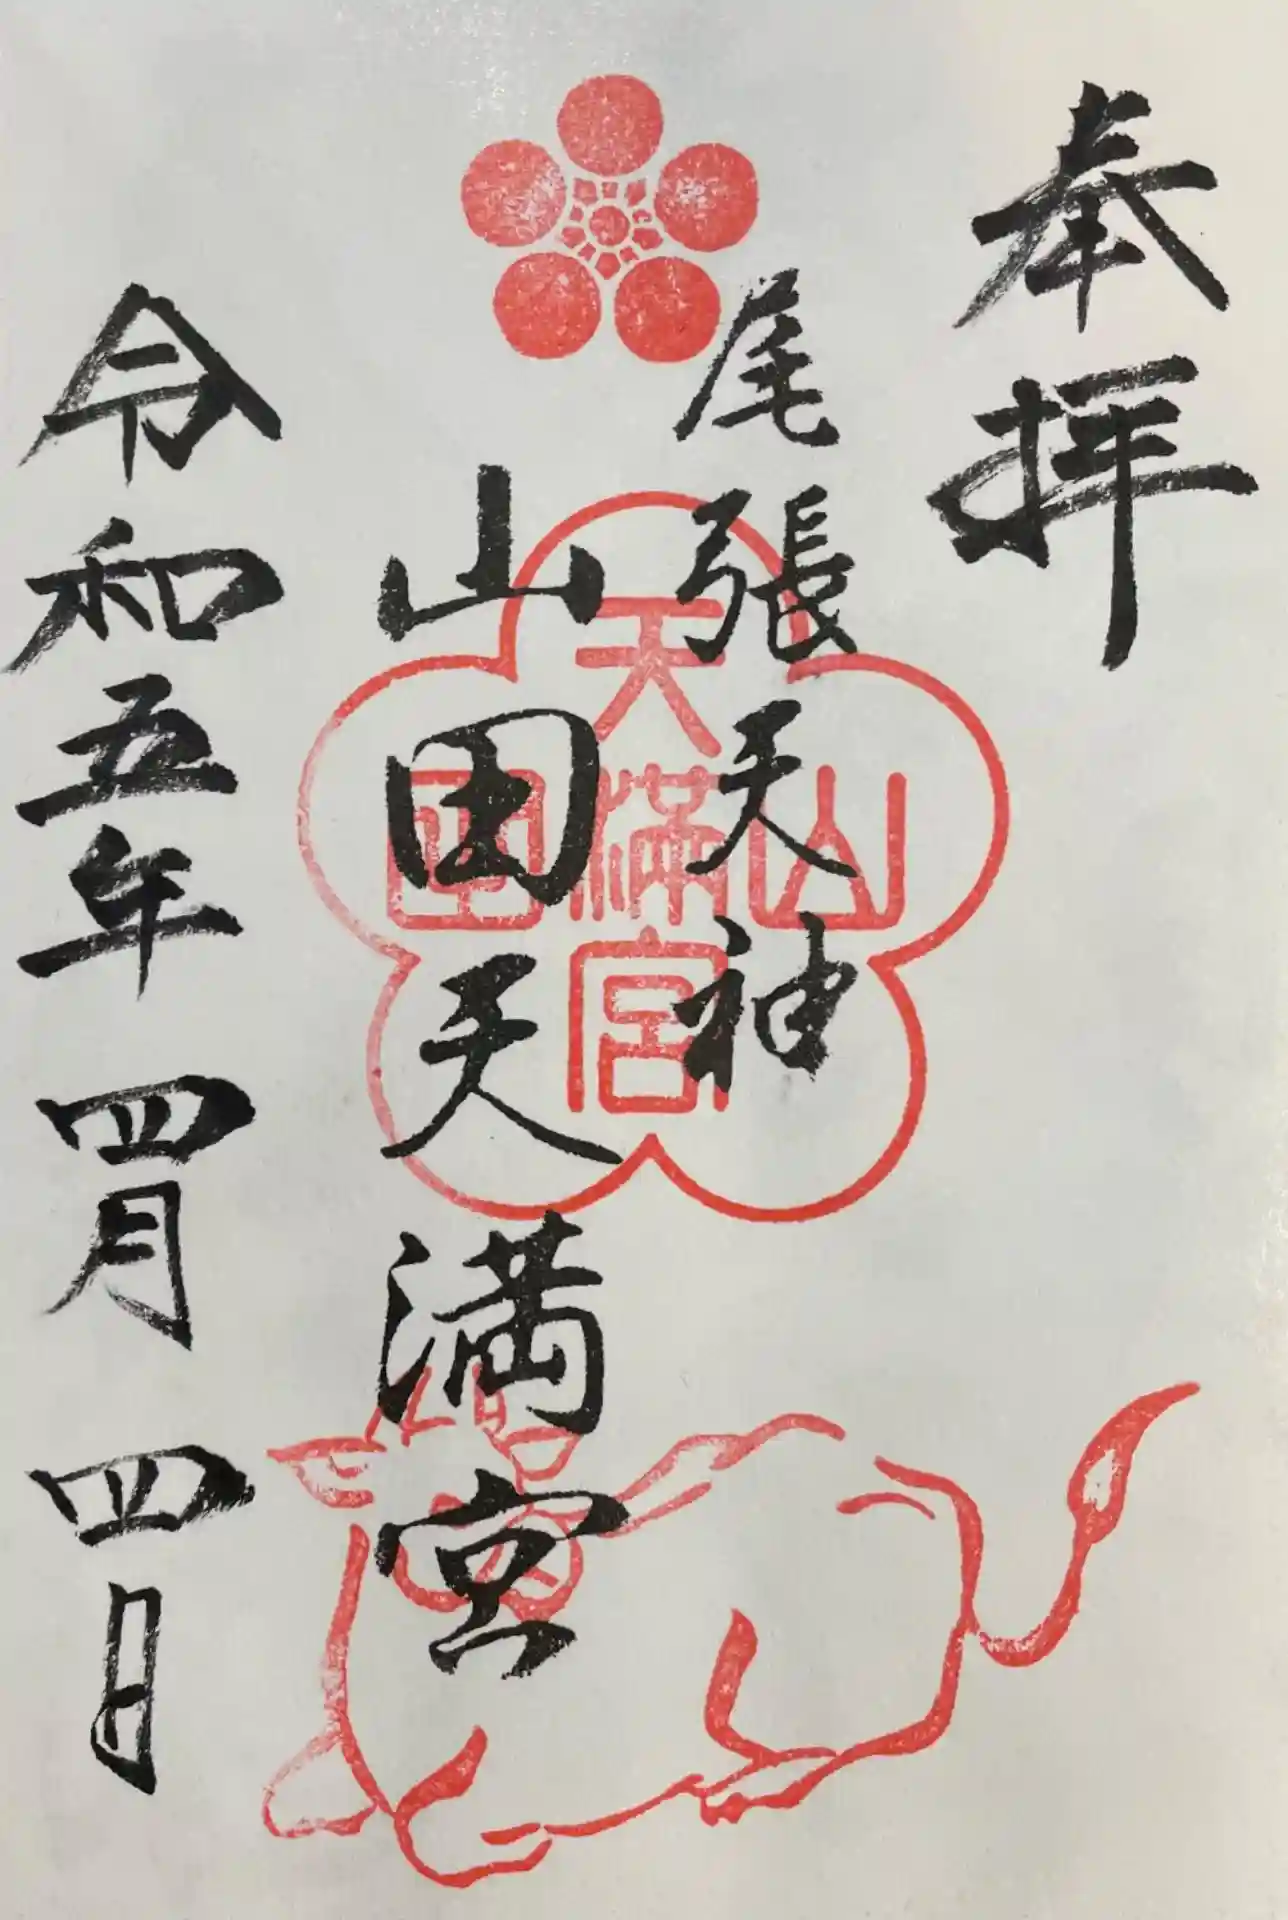 奉拝
尾張天神
山田天満宮
山田天満宮
令和五年四月四日